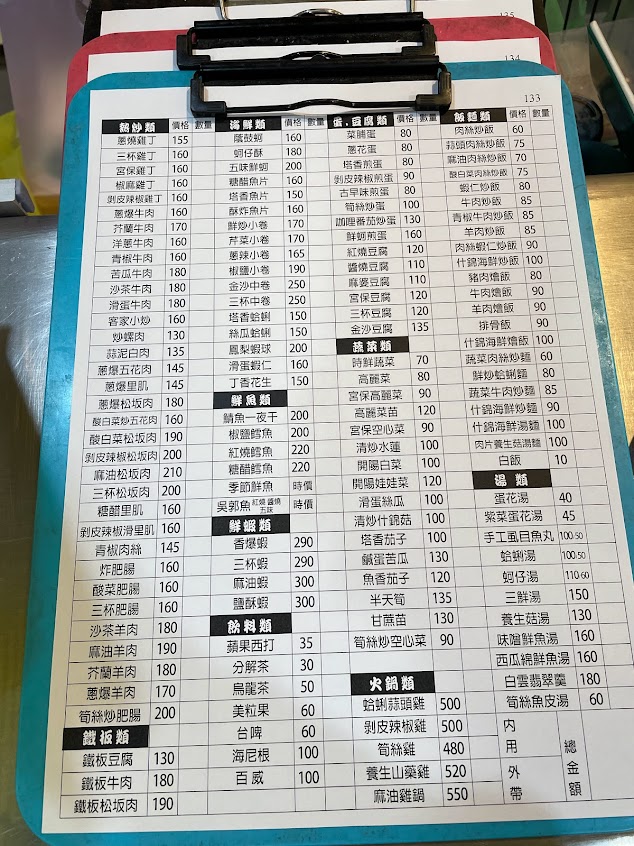 135
134
133
熱炒類 價格 數量
蔥燒雞丁 155
三杯雞丁 160
宮保雞丁 160
椒麻雞丁 160
剝皮辣椒雞丁 160
蔥爆牛肉 160
芥蘭牛肉 170
洋蔥牛肉 160
青椒牛肉 160
苦瓜牛肉 180
沙茶牛肉 180
滑蛋牛肉 180
客家小炒 160
炒螺肉 130
蒜泥白肉 135
蔥爆五花肉 145
蔥爆里肌 145
蔥爆松坂肉 180
酸白菜炒五花肉 160
酸白菜松坂肉 190
剝皮辣椒松坂肉 200
麻油松坂肉 210
三杯松坂肉 200
糖醋里肌 160
剝皮辣椒滑里肌 160
青椒肉絲 145
炸肥腸 160
酸菜肥腸 160
三杯肥腸 160
沙茶羊肉 180
麻油羊肉 190
芥蘭羊肉 180
蔥爆羊肉 170
筍絲炒肥腸 200
鐵板類
鐵板豆腐 130
鐵板牛肉 180
鐵板松坂肉 190
海鮮類 價格 數量
蔭鼓蚵 160
蚵仔酥 180
五味鮮蚵 200
糖醋魚片 160
塔香魚片 150
酥炸魚片 160
鮮炒小卷 170
芹菜小卷 170
蔥辣小卷 165
椒鹽小卷 190
金沙中卷 250
三杯中卷 250
塔香蛤蜊 150
絲瓜蛤蜊 150
鳳梨蝦球 200
滑蛋蝦仁 160
丁香花生 150
鮮魚類
鯖魚一夜干 200
椒鹽鱈魚 200
紅燒鱈魚 220
糖醋鱈魚 220
季節鮮魚 時價
吳郭魚 紅燒 醬燒 五味 時價
鮮蝦類
香爆蝦 290
三杯蝦 290
麻油蝦 300
鹽酥蝦 300
飲料類
蘋果西打 35
分解茶 30
烏龍茶 50
美粒果 60
台啤 60
海尼根 100
百威 100
蛋.豆腐類 價格 數量
菜脯蛋 80
蔥花蛋 80
塔香煎蛋 80
剝皮辣椒煎蛋 90
古早味煎蛋 80
筍絲炒蛋 100
咖哩番茄炒蛋 130
鮮蚵煎蛋 160
紅燒豆腐 120
醬燒豆腐 110
麻婆豆腐 110
宮保豆腐 120
三杯豆腐 120
金沙豆腐 135
蔬菜類
時鮮蔬菜 70
高麗菜 80
宮保高麗菜 90
高麗菜苗 120
宮保空心菜 90
清炒水蓮 100
開陽白菜 100
開陽娃娃菜 120
滑蛋絲瓜 100
清炒什錦菇 100
塔香茄子 100
鹹蛋苦瓜 130
魚香茄子 120
半天筍 135
甘蔗苗 130
筍絲炒空心菜 90
火鍋類
蛤蜊蒜頭雞 500
剝皮辣椒雞 500
筍絲雞 480
養生山藥雞 520
麻油雞鍋 550
飯麵類 價格 數量
肉絲炒飯 60
蒜頭肉絲炒飯 75
麻油肉絲炒飯 70
酸白菜肉絲炒飯 75
蝦仁炒飯 80
牛肉炒飯 85
青椒牛肉炒飯 85
羊肉炒飯 85
肉絲蝦仁炒飯 90
什錦海鮮炒飯 100
豬肉燴飯 80
牛肉燴飯 90
羊肉燴飯 90
排骨飯 90
什錦海鮮燴飯 100
蔬菜肉絲炒麵 60
鮮炒蛤蜊麵 80
蔬菜牛肉炒麵 85
什錦海鮮炒麵 90
什錦海鮮湯麵 100
肉片養生菇湯麵 100
白飯 10
湯類
蛋花湯 40
紫菜蛋花湯 45
手工虱目魚丸 100-50
蛤蜊湯 100-50
蚵仔湯 110-60
三鮮湯 150
養生菇湯 130
味噌鮮魚湯 160
西瓜綿鮮魚湯 160
白雲翡翠羹 180
筍絲魚皮湯 60
內用外帶
總金額